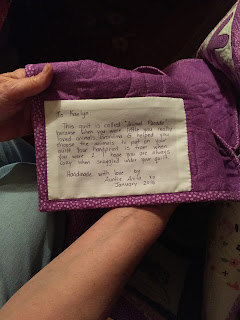 To Kaelyn
This quilt is called "Animal Parade"
because when you were little you really
loved animals. Grandma & helped you
choose the animals to put on your
quilt. Your handprint is from when
you were 2. I hope you are always
cozy when snuggled under your quilt.
Handmade with love by
Auntie Anita
January 2016